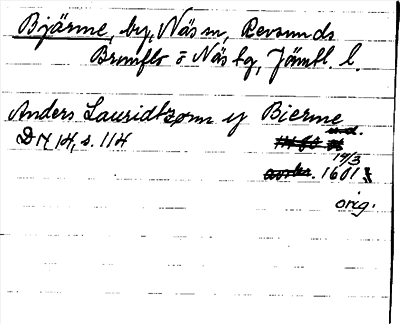 Bjärme, by, Näs sn, Revsunds
Brunflo o Näs tg, Jämtl. l.
Anders Lauridtzønn y Bierme
DN 14, s. 114
19/3
1601
orig.